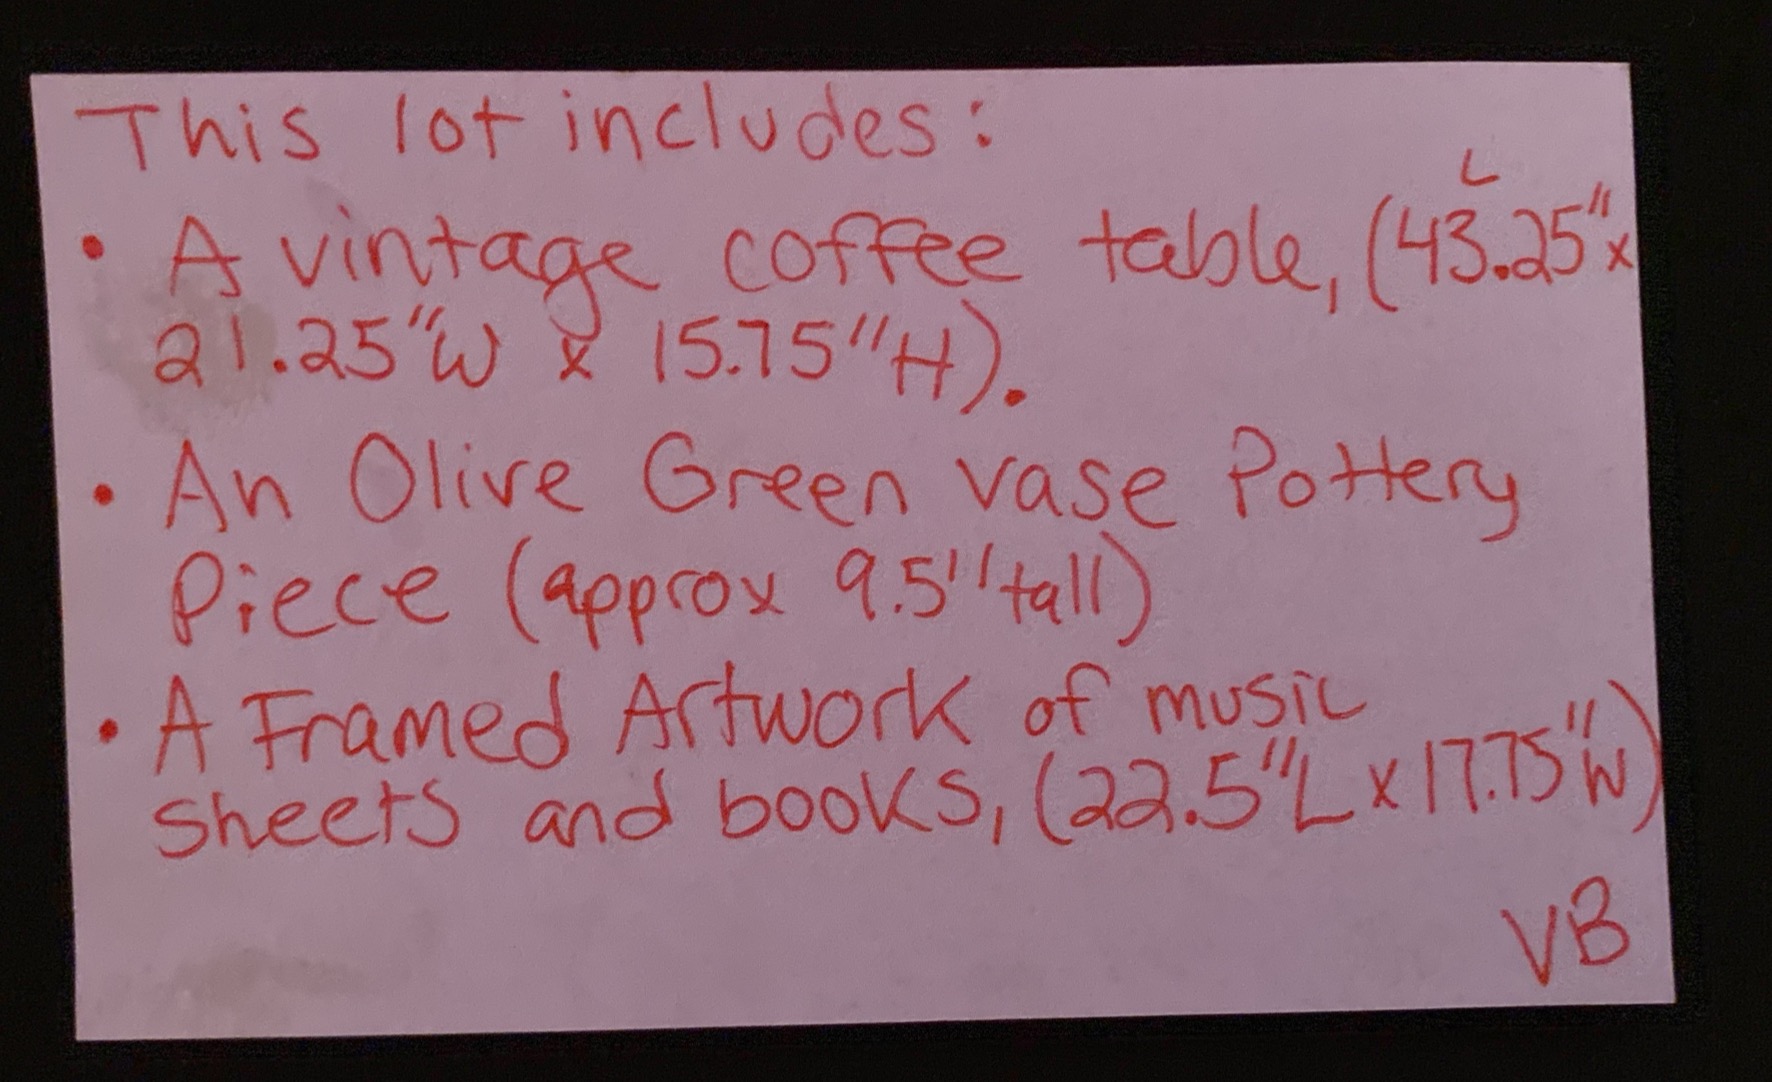 This lot includes:
• A vintage coffee table, (43.25"L x
21.25"W x 15.75"H).
• An Olive Green vase Pottery
Piece (approx 9.5" tall)
• A Framed Artwork of music
sheets and books, (22.5"L x 17.75"W)
VB